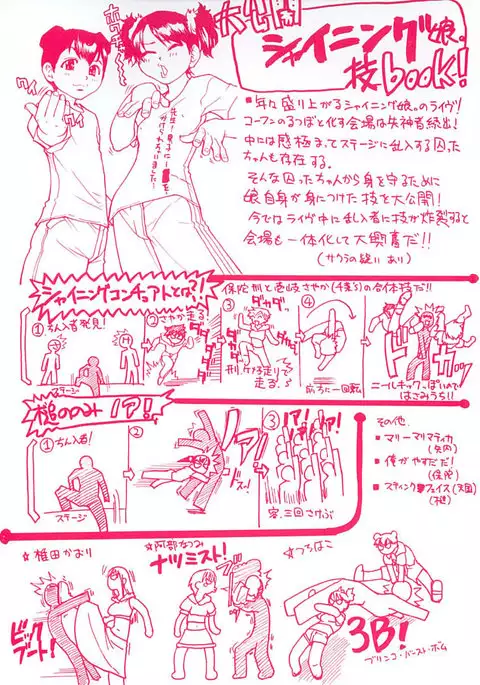 大公開
シャイニング娘。
技book!
■年々盛り上がるシャイニング娘。のライヴ!
コーフンのるつぼと化す会場は失神者続出!
中には感極まってステージに乱入する囚った
ちゃんも存在する。
そんな囚ったちゃんから身を守るために
娘自身が身につけた技を大公開!
今ではライヴ中に乱入者に技が炸裂すると
会場も一体化して大興奮だ!!
(サクラの疑い あり)
シャイニングコンチェルトとは?!
①乱入者発見!
ステージ
②さやか走る
ダダダダ
③
ダカダカ
走る
④
前方に一回転
ドカッ
ニールキックっぽいので
はさみうち!!
槌ののみノア!
①乱入者!
ステージ
②
ノアー!
ドスッ!
③
ノアー!
客、三回さけぶ
その他、
■マリーマリマティカ
(矢内)
■僕がやすだだ!
(保陀)
■スティングフェイス
(槌)
☆椎田かおり
ビッグ
ブート!
☆阿部なつみ
ナツミスト!
☆つちはこ
3B!
ブリンコ・バースト・ボム